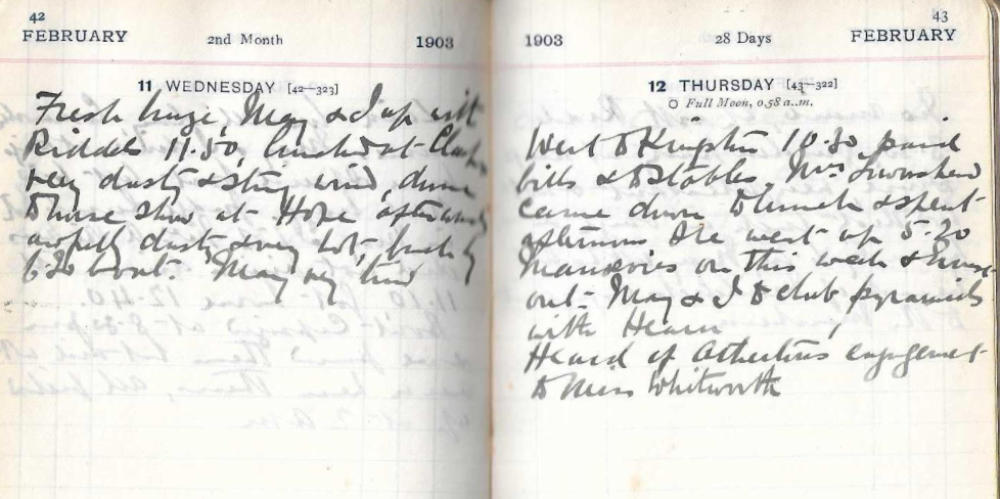 42
FEBRUARY 2nd Month 1903
11 WEDNESDAY [42—323]
Fresh May & I up with
Riddels 11.50, lunched at
very dusty & strng wind, drove
to horse show at Hope afterwards
awfully dusty & very hot, back by
6.30 boat. May very tired
43
1903 28 Days FEBRUARY
12 THURSDAY [43—322]
Full Moon, 0.58 a.m.
Went to Kingston 10.30, paid
bills & to stables, Mrs
came down to lunch & spent
afternoon, She went up 5.20
Manœvres on this week &
out. May & I to club pyramids
with Hearn
Heard of Athertons engagement
to Miss Whitworth